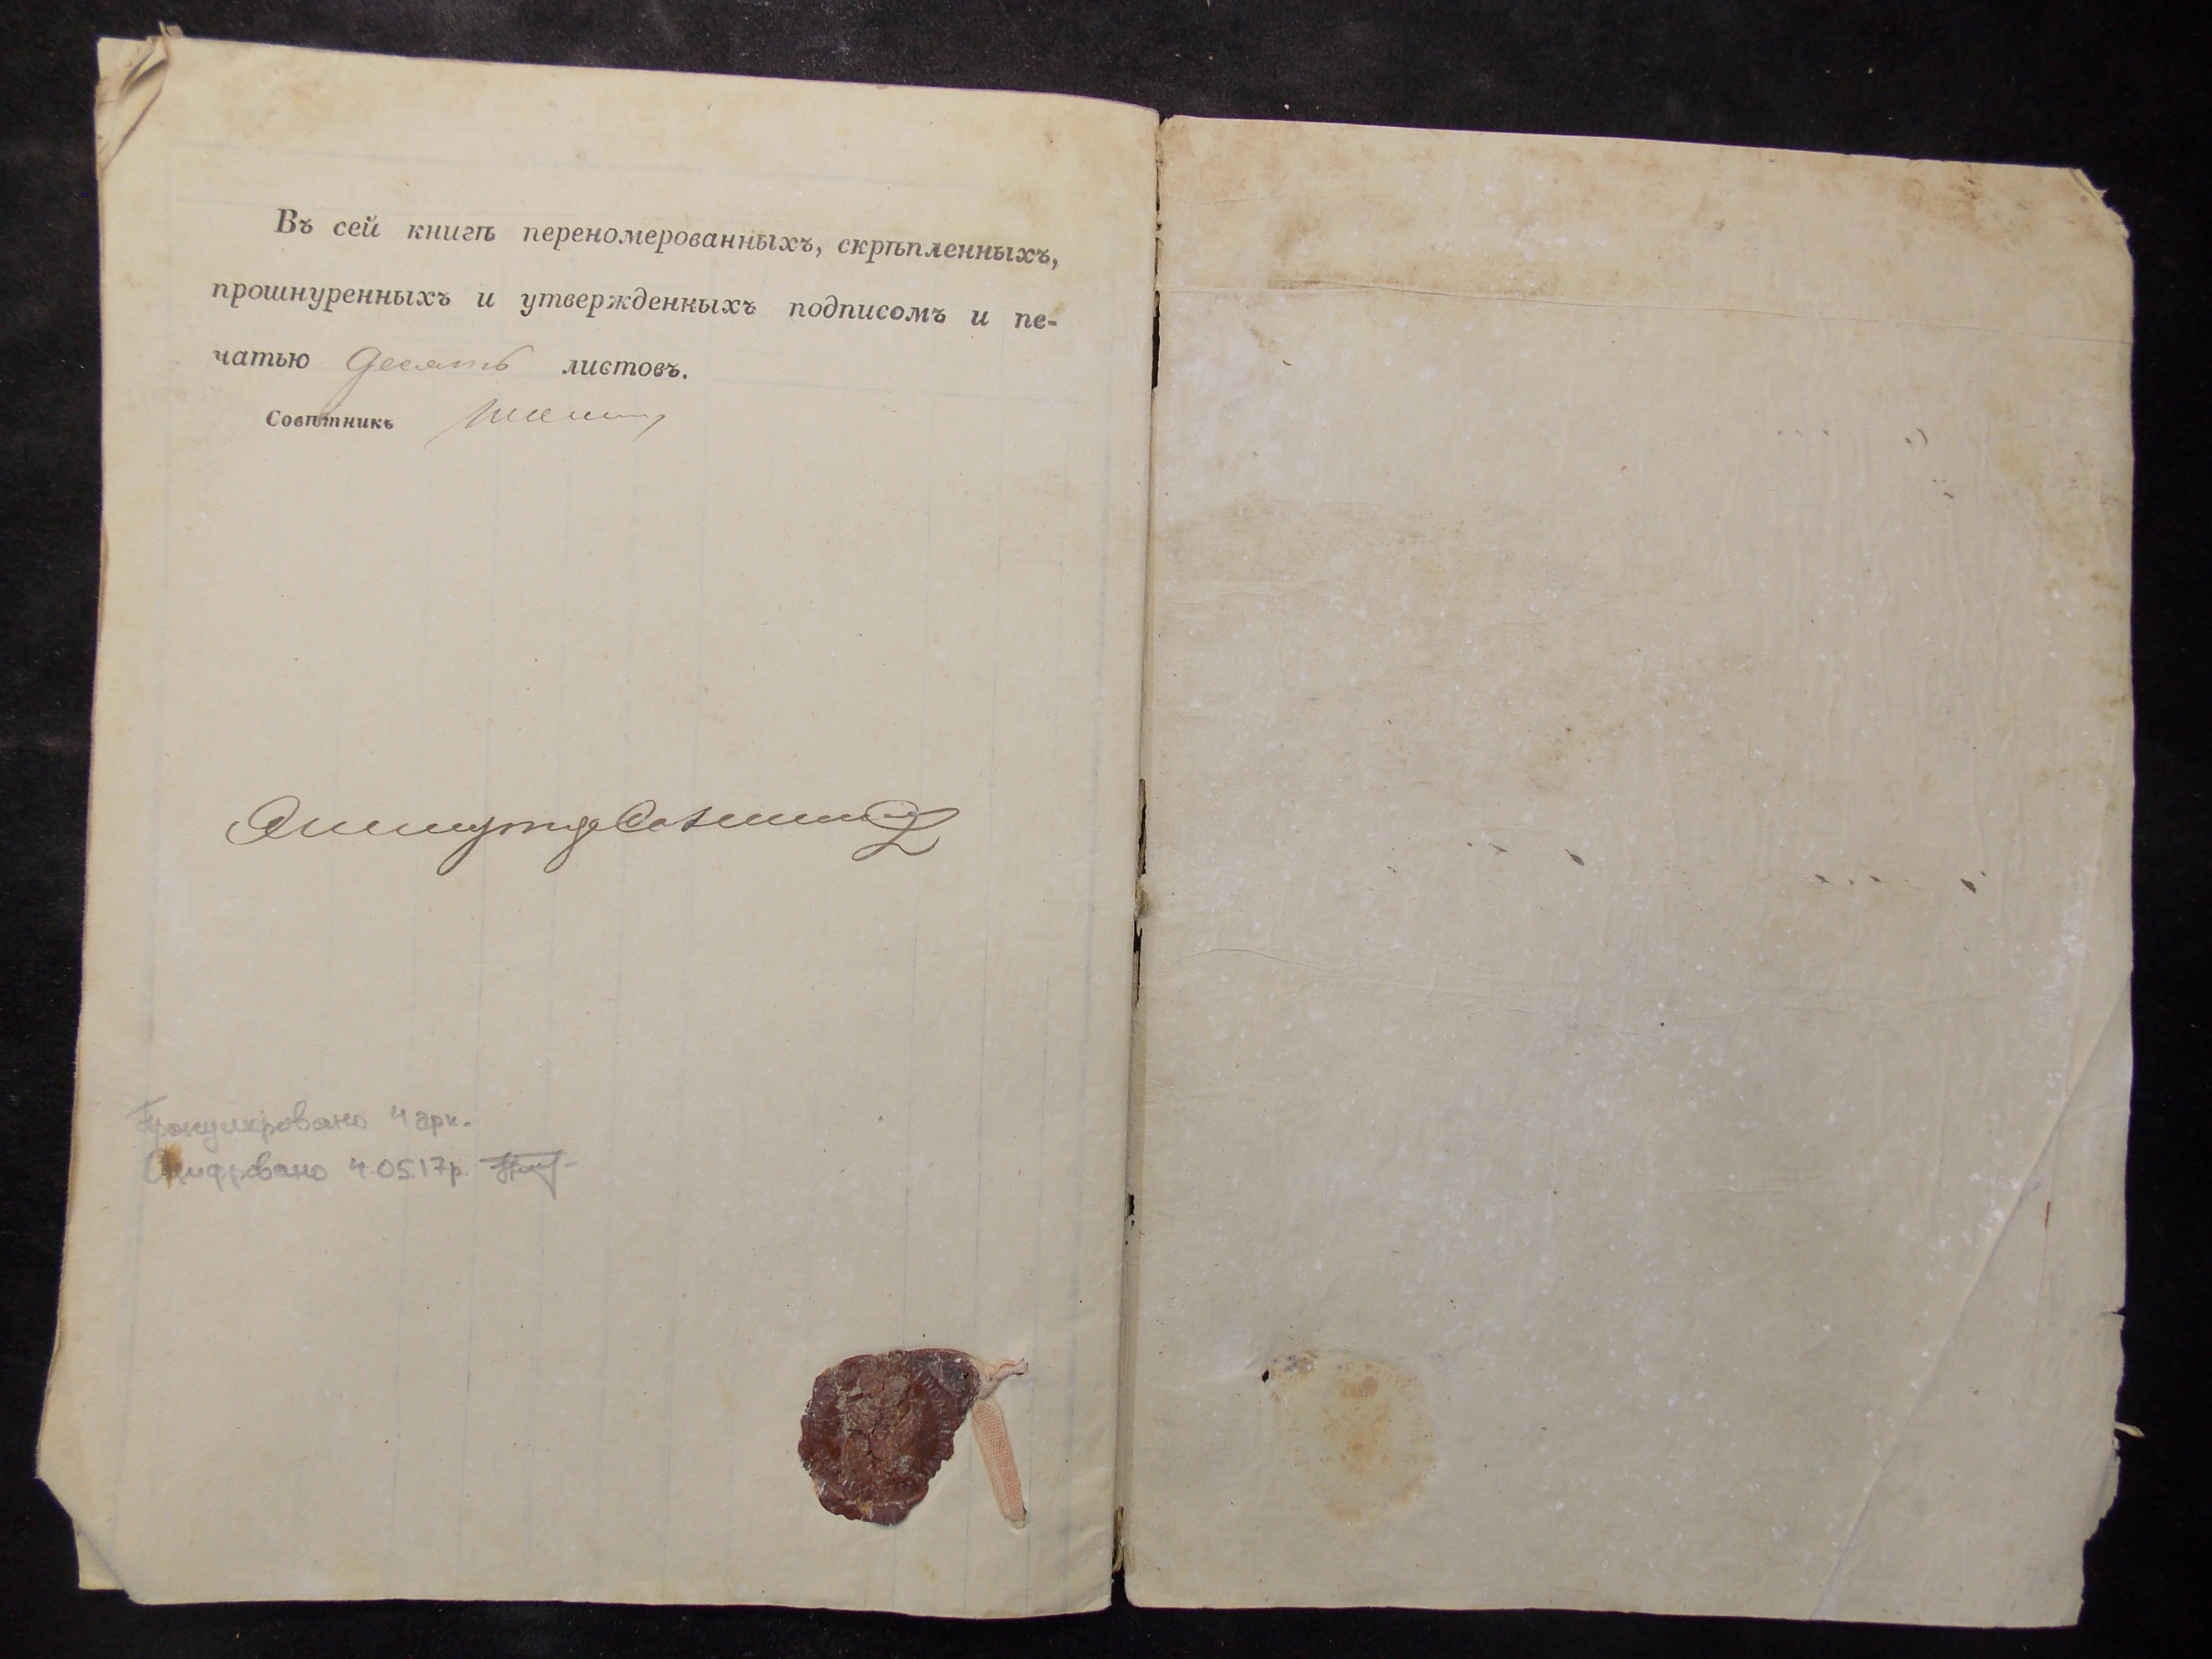 Въ сей книгѣ переномерованныхъ, скрѣпленныхъ,
прошнуренныхъ и утвержденныхъ подписомъ и пе-
чатью десять листовъ.
Совѣтникъ
Пронумеровано 4 арк.
Оцифровано 4.05.17р.